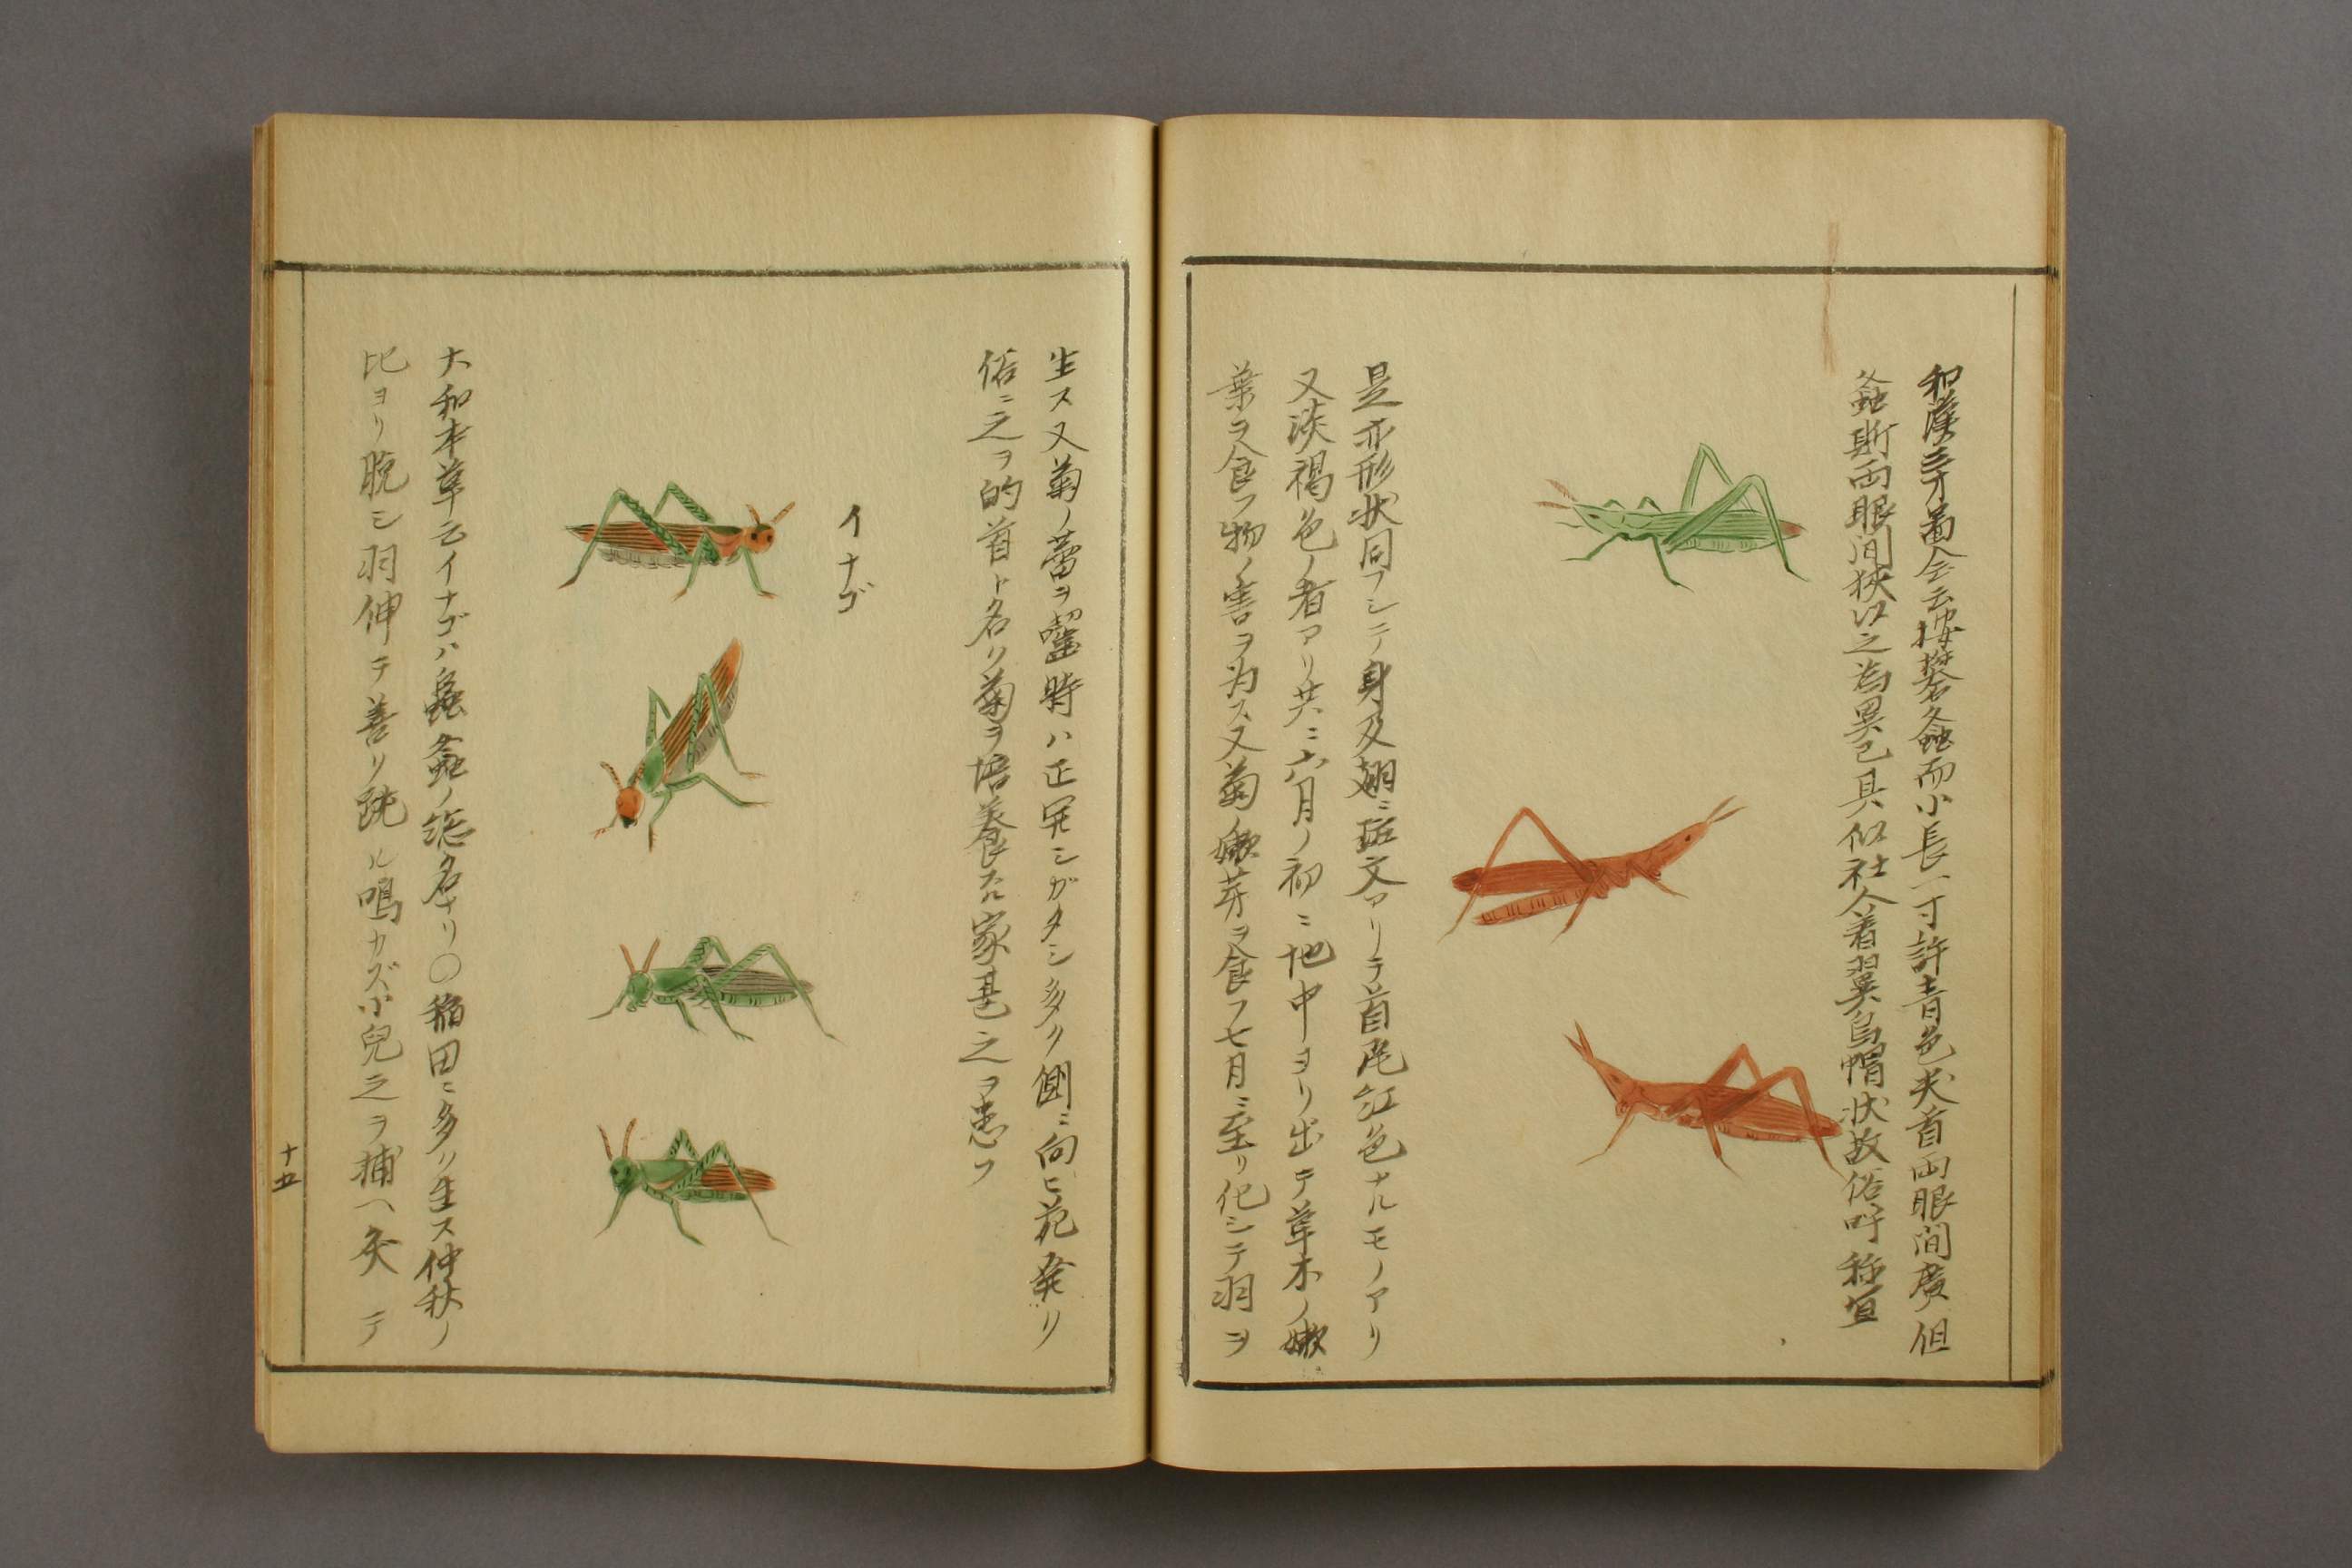 和漢三才圖会云按礬螽而小長一寸許青色尖首両眼間廣但
螽斯両眼間狭以之為異已具似社人着翼烏帽状故俗呼称宜
是亦形状同フシテ身及翅ニ斑文アリテ首尾紅色ナルモノアリ
又淡褐色ノ者アリ共ニ六月ノ初ニ地中ヨリ出テ草木ノ嫩
葉ヲ食フ物ノ害ヲ为ス又菊ノ嫩芽ヲ食フ七月ニ至リ化シテ羽ヲ
生ス又菊ノ蕾ヲ齧時ハ正開シガタシ多ク側ニ向ヒ花発リ
俗ニ之ヲ的首ト名ク菊ヲ培養スル家甚之ヲ患フ
イナゴ
大和本草云イナゴハ螽ノ惣名ナリ〇稲田ニ多ク生ス仲秋ノ
比ヨリ脱シ羽伸テ善ク跳ル鳴カズ小兒之ヲ捕ヘ炙テ
十五